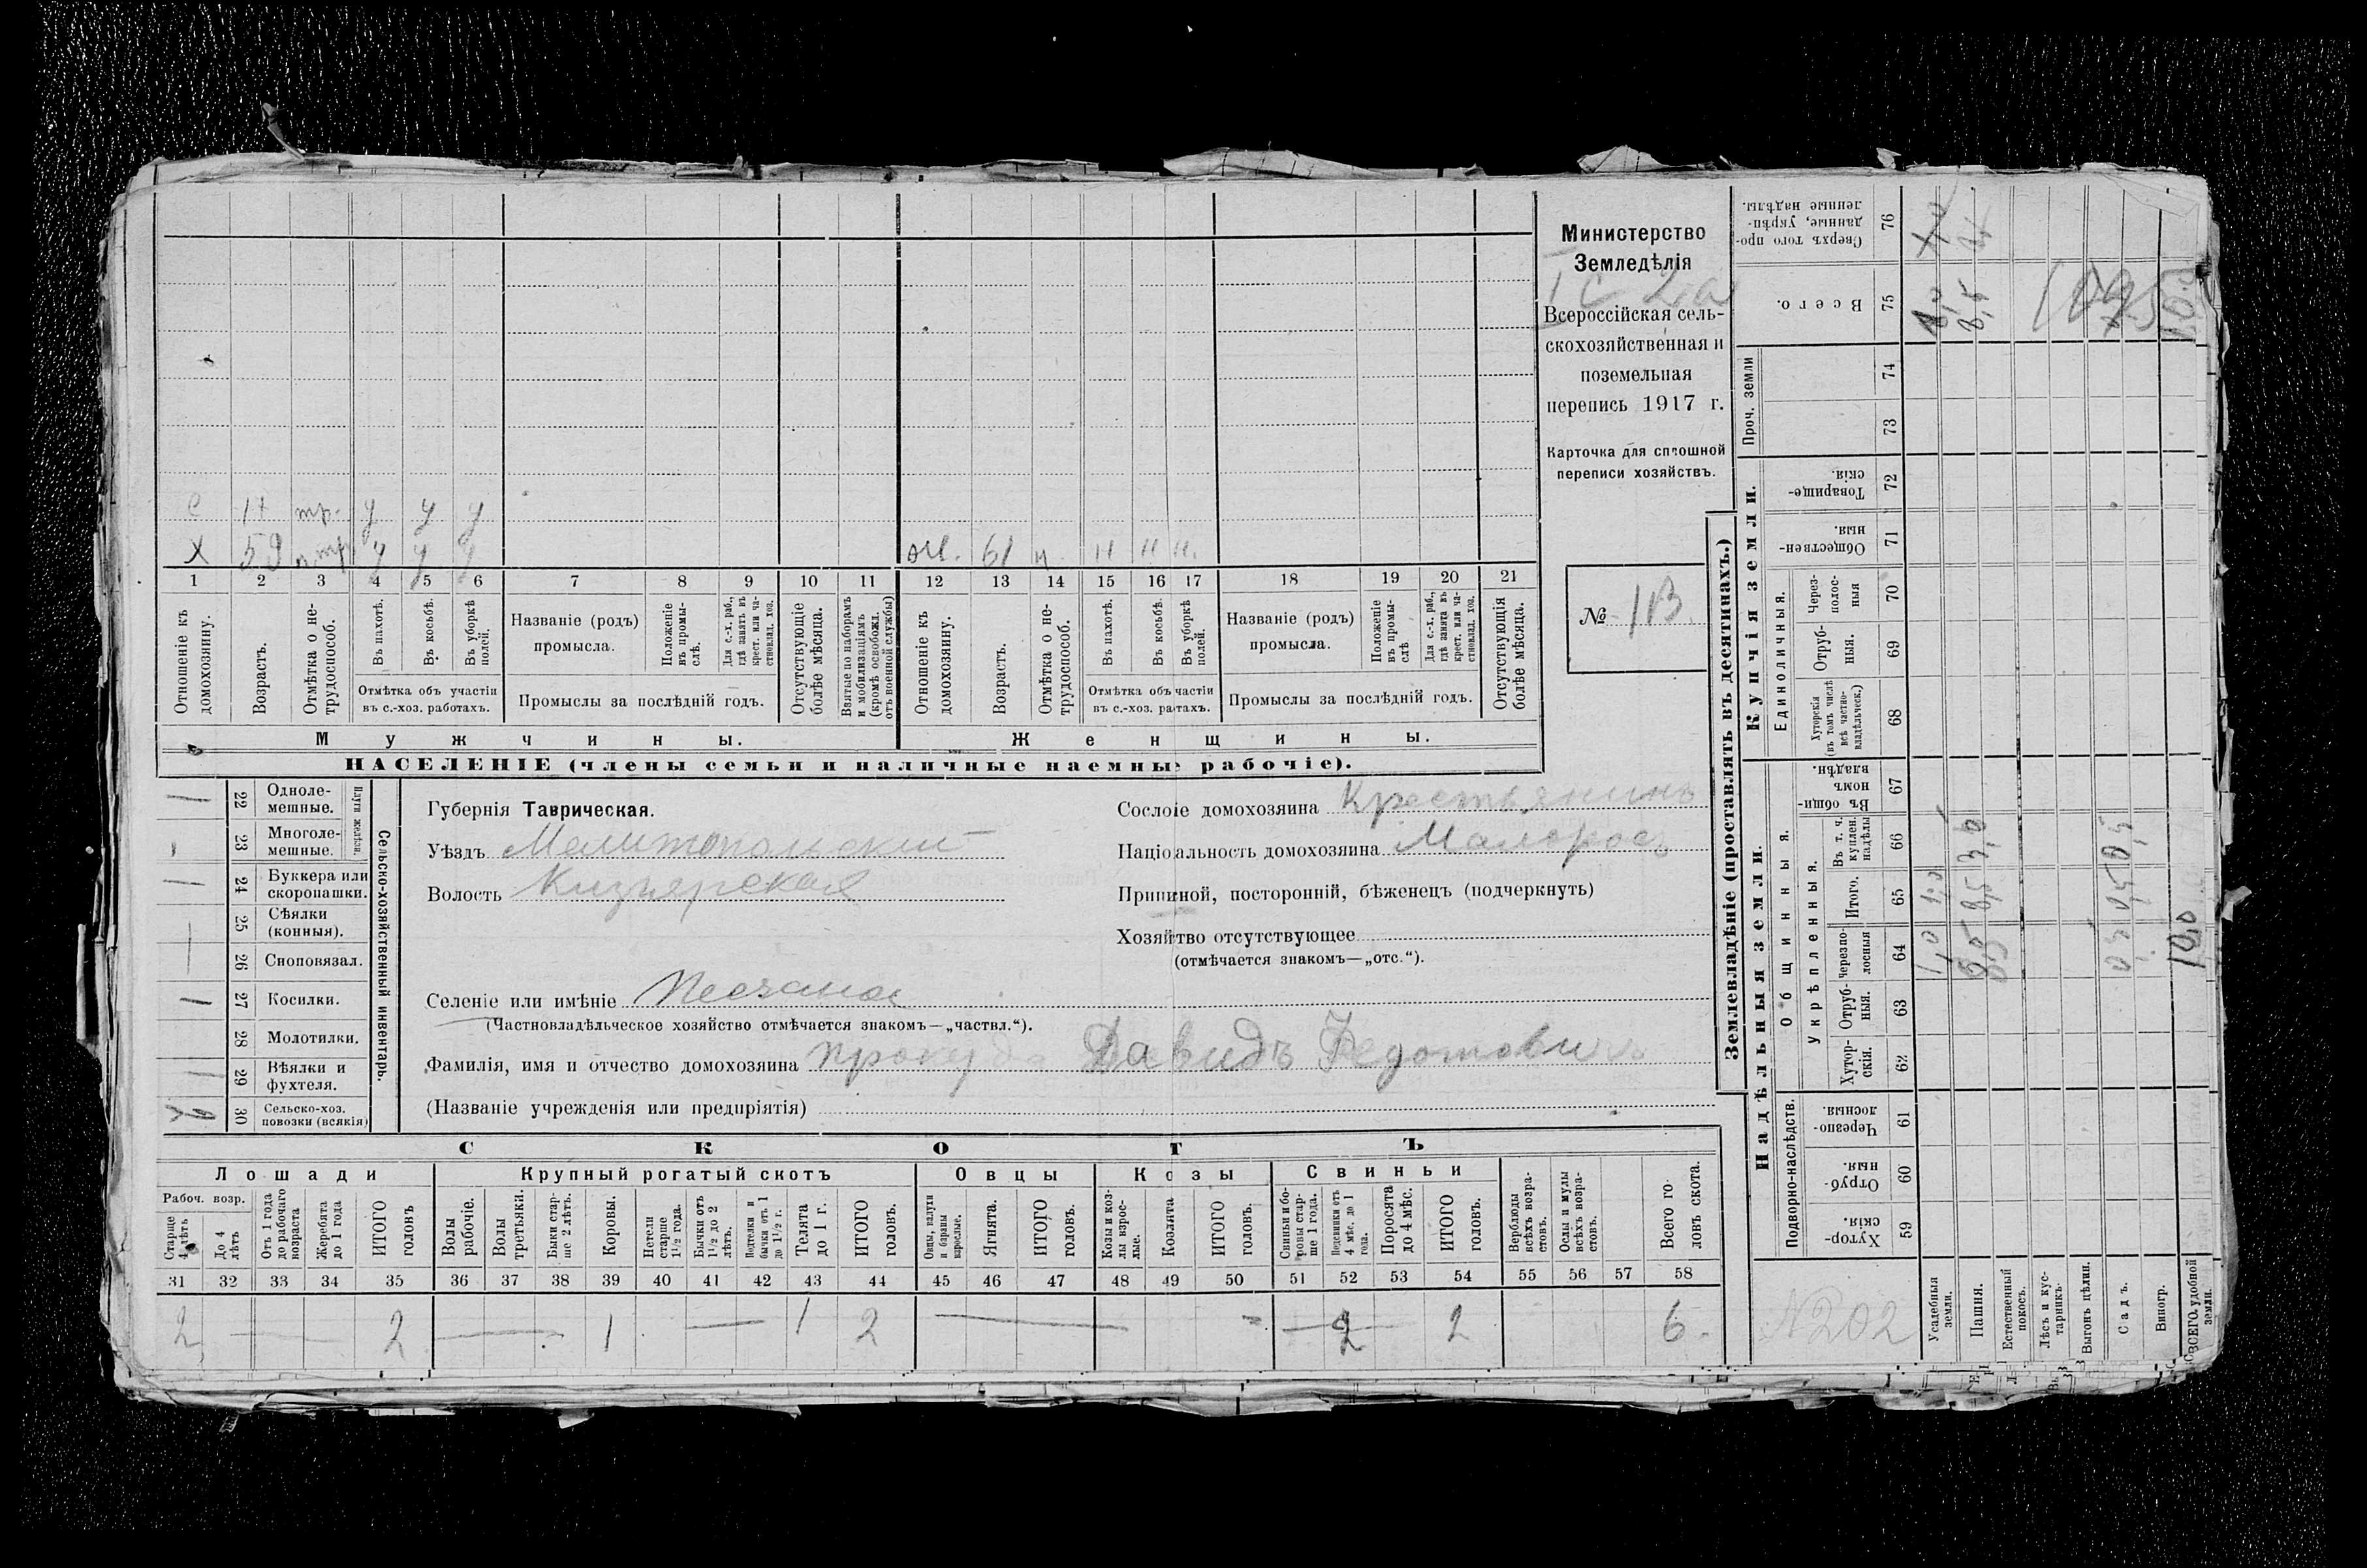 Министерство
Земледѣлія
Всероссійская сель-
скохозяйственная и
поземельная
перепись 1917 г.
Карточка для сплошной
переписи хозяйствъ.
№ 113
с 17 тр. у у у
х 59 п. тр у у у
ж. 61 н н н н.
1 2 3 4 5 6 7 8 9 10 11 12 13 14 15 16 17 18 19 20 21
Отношеніе къ домохозяину.
Возрастъ.
Отмѣтка о не-трудоспособ.
Въ пахотѣ.
Въ косьбѣ.
Въ уборкѣ полей.
Отмѣтка объ участіи
въ с.-хоз. работахъ.
Названіе (родъ)
промысла.
Положеніе въ промы-слѣ.
Для с.-х. раб., гдѣ занятъ въ крест. или ча-стновлад. хоз.
Промыслы за послѣдній годъ.
Отсутствующіе болѣе мѣсяца.
Взятые по наборамъ и мобилизаціямъ (кромѣ освобожд. отъ военной службы)
Отношеніе къ домохозяину.
Возрастъ.
Отмѣтка о не-трудоспособ.
Въ пахотѣ.
Въ косьбѣ.
Въ уборкѣ полей.
Отмѣтка объ частіи
въ с.-хоз. ратахъ.
Названіе (родъ)
промысла.
Положеніе въ промы-слѣ
Для с.-х. раб., гдѣ занята въ крест. или ча-стновлад. хоз.
Промыслы за послѣдній годъ.
Отсутствующія болѣе мѣсяца.
Мужчины.
Женщины.
НАСЕЛЕНІЕ (члены семьи и наличные наемные рабочіе).
22 Одноле-мешные.
23 Многоле-мешные.
Плуги желѣзн.
24 Буккера или скоропашки.
25 Сѣялки (конныя).
26 Сноповязал.
27 Косилки.
28 Молотилки.
29 Вѣялки и фухтеля.
30 Сельско-хоз. повозки (всякія)
Сельско-хозяйственный инвентарь.
Губернія Таврическая.
Уѣздъ Мелитопольскій
Волость Кизіярская
Селеніе или имѣніе Песчаное
(Частновладѣльческое хозяйство отмѣчается знакомъ—„частвл.“).
Фамилія, имя и отчество домохозяина Прокуда Давидъ Федотовичъ
(Названіе учрежденія или предпріятія)
Сословіе домохозяина Крестьянинъ
Національность домохозяина Малоросъ
Приписной, посторонній, бѣженецъ (подчеркнуть)
Хозяйтво отсутствующее
(отмѣчается знакомъ—„отс.“).
СКОТЪ
Лошади
Крупный рогатый скотъ
Овцы
Козы
Свиньи
Рабоч. возр.
Старше 4 лѣтъ
До 4 лѣтъ
Отъ 1 года до рабочаго возраста
Жеребята до 1 года
ИТОГО головъ
Волы рабочіе.
Волы третьяки.
Быки стар-ше 2 лѣтъ.
Коровы.
Нетели старше 1½ года.
Бычки отъ 1½ до 2 лѣтъ.
Подтелки и бычки отъ 1 до 1½ г.
Телята до 1 г.
ИТОГО головъ.
Овцы, валухи и бараны взрослые.
Ягнята.
ИТОГО головъ.
Козы и коз-лы взрос-лые.
Козлята
ИТОГО головъ.
Свиньи и бо-ровы стар-ше 1 года.
Подсвинки отъ 4 мѣс. до 1 года.
Поросята до 4 мѣс.
ИТОГО головъ.
Верблюды всѣхъ возра-стовъ.
Ослы и мулы всѣхъ возра-стовъ.
Всего го-ловъ скота.
31 32 33 34 35 36 37 38 39 40 41 42 43 44 45 46 47 48 49 50 51 52 53 54 55 56 57 58
2 — — 2 — 1 — 1 2 — — 2 2 6
Землевладѣніе (проставлять въ десятинахъ.)
Купчія земли.
Надѣльныя земли.
Сверхъ того про-данные, укрѣп-ленные надѣлы. 76
Всего. 75
Проч. земли
74
73
Товарище-скія. 72
Обществен-ныя 71
Единоличныя.
Через-полос-ныя 70
Отруб-ныя. 69
Хуторскія (въ томъ числѣ всѣ частно-владѣльческ.) 68
Общинныя.
Въ общи-номъ владѣн. 67
Укрѣпленныя.
Въ т. ч. куплен. надѣлы 66
Итого. 65
Черезпо-лосныя 64
Отруб-ныя. 63
Хутор-скія. 62
Подворно-наслѣдств.
Черезпо-лосныя. 61
Отруб-ныя. 60
Хутор-скія. 59
Усадебныя земли. 1,0 1,0
Пашня. 8,5 8,5 3,5 8,5
Естественный покосъ.
Лѣсъ и кус-тарникъ.
Выгонъ цѣлин.
Садъ. 0,5 0,5 0,5
Виногр.
ВСЕГО удобной земли. 10,0
№202